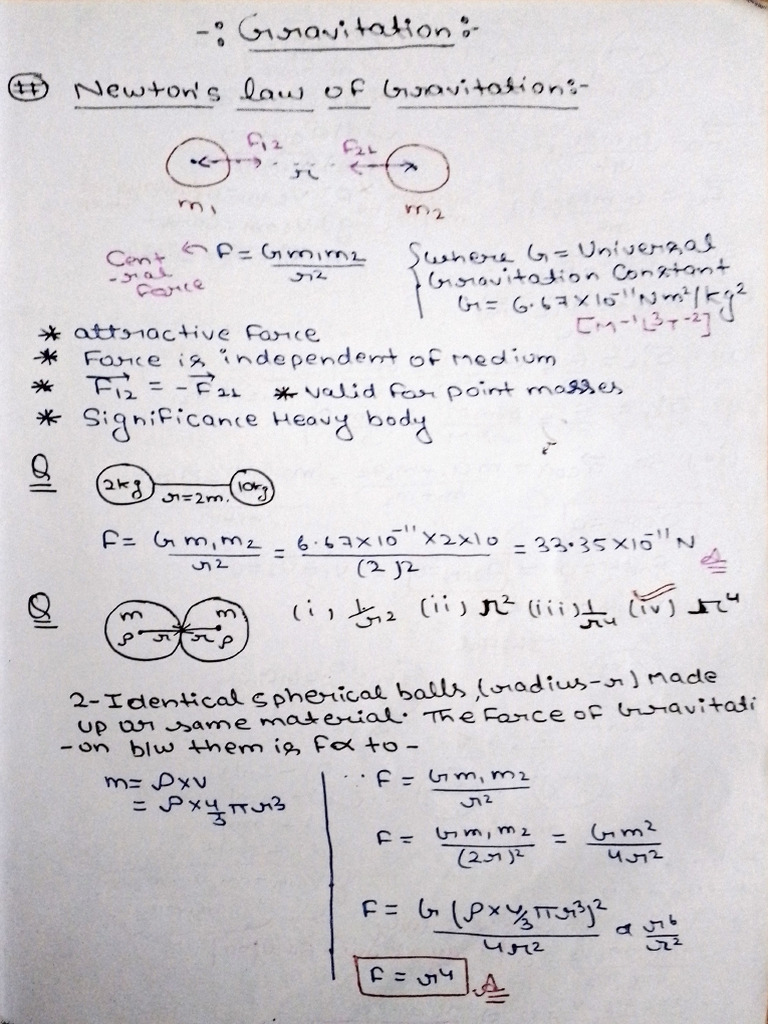 -: Gravitation :-
# Newton's law of Gravitation:-
F12 F21
r
m1 m2
Central Force ← F = Gm1m2/r²
{where G = Universal
Gravitation Constant
G = 6.67×10⁻¹¹Nm²/kg²
[M⁻¹L³T⁻²]
* attractive Force
* Force is independent of medium
* F12 = -F21 * valid for point masses
* Significance Heavy body
Q
2kg r=2m. 10kg
F = Gm1m2/r² = 6.67×10⁻¹¹×2×10/(2)² = 33.35×10⁻¹¹N A
Q
m m
ρ r r ρ
(i) 1/r² (ii) r² (iii) 1/r⁴ (iv) r⁴
2-Identical spherical balls, (radius-r) made
up or same material. The Force of Gravitati
-on b/w them is F∝ to -
m = ρ×v
= ρ×4/3πr³
F = Gm1m2/r²
F = Gm1m2/(2r)² = Gm²/4r²
F = G(ρ×4/3πr³)²/4r² ∝ r⁶/r²
F = r⁴ A